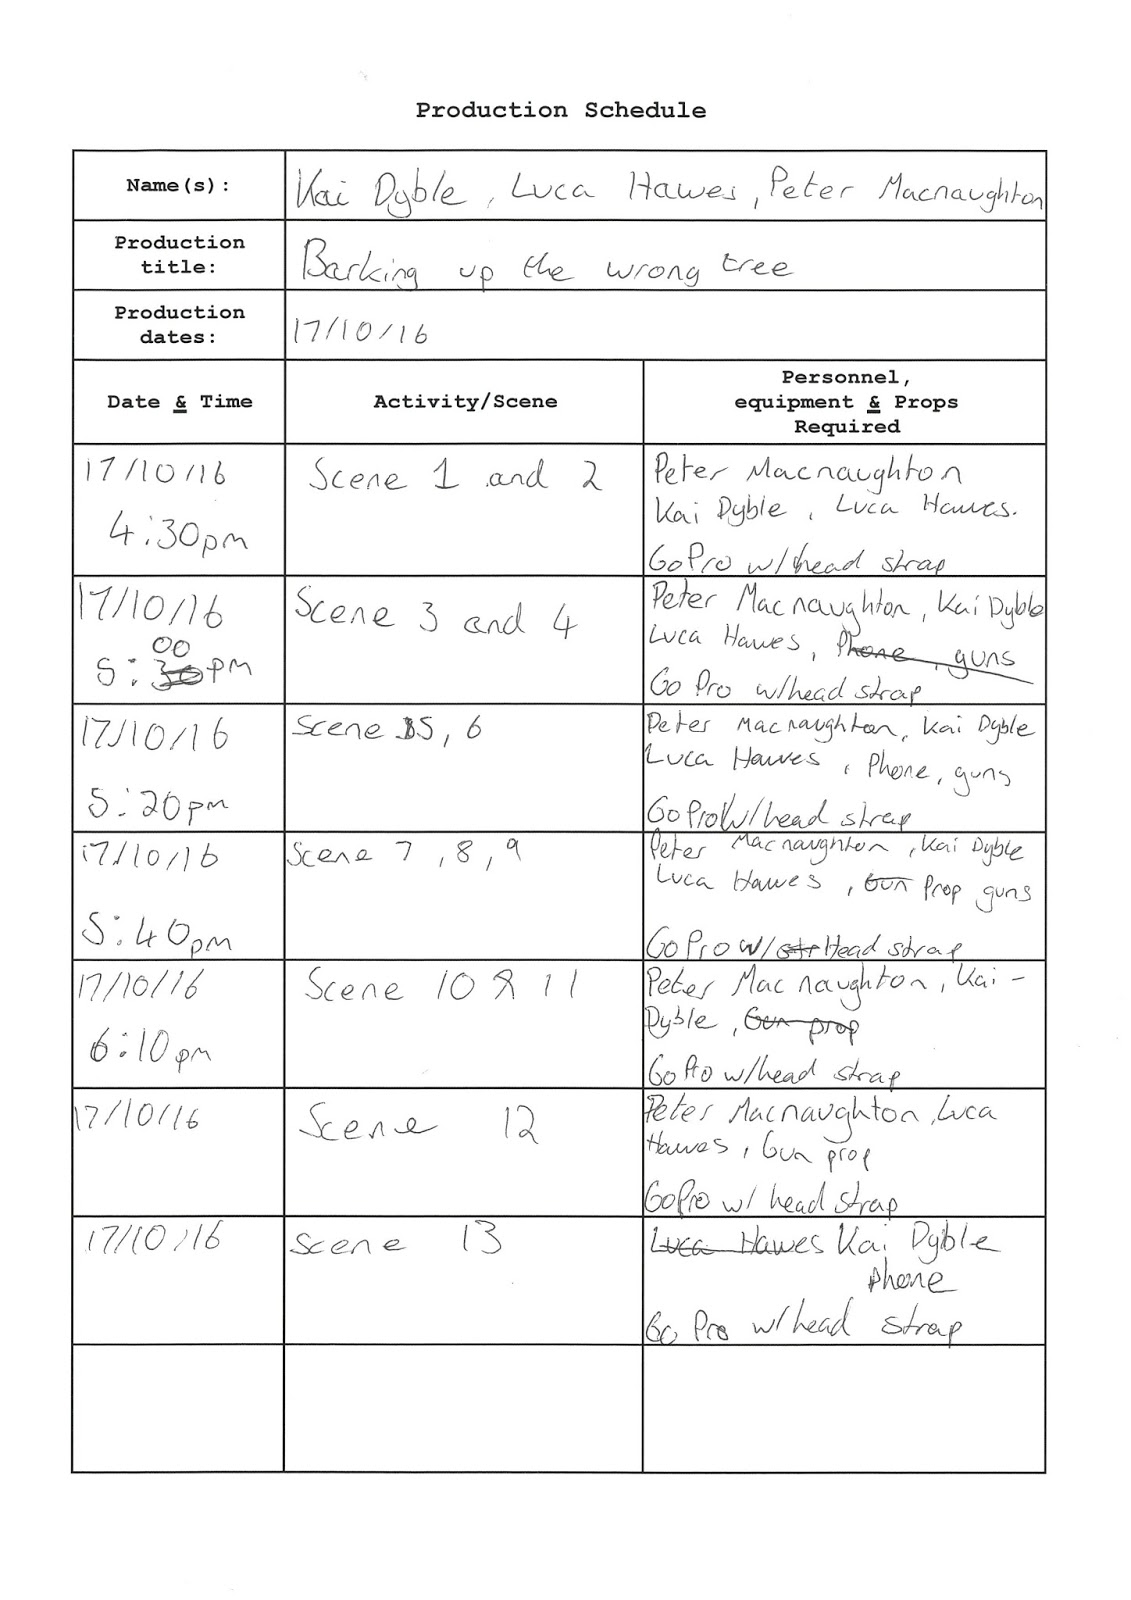 Production Schedule
Name(s):
Kai Dyble, Luca Hawes, Peter Macnaughton
Production
title:
Barking up the wrong tree
Production
dates:
17/10/16
Date & Time
Activity/Scene
Personnel,
equipment & Props
Required
17/10/16
4:30pm
Scene 1 and 2
Peter Macnaughton
Kai Dyble, Luca Hawes.
GoPro w/head strap
17/10/16
00
5:30pm
Scene 3 and 4
Peter Macnaughton, Kai Dyble
Luca Hawes, Phone, guns
Go Pro w/head strap
17/10/16
5:20pm
Scene 5, 6
Peter Macnaughton, Kai Dyble
Luca Hawes, Phone, guns
GoPro W/head strap
17/10/16
5:40pm
Scene 7, 8, 9
Peter Macnaughton, Kai Dyble
Luca Hawes, Gun Prop guns
GoPro w/ str Head strap
17/10/16
6:10pm
Scene 10 & 11
Peter Macnaughton, Kai-
Dyble, Gun prop
GoPro w/head strap
17/10/16
Scene 12
Peter Macnaughton, Luca
Hawes, Gun prop
GoPro w/ head strap
17/10/16
Scene 13
Luca Hawes Kai Dyble
phone
Go Pro w/head strap